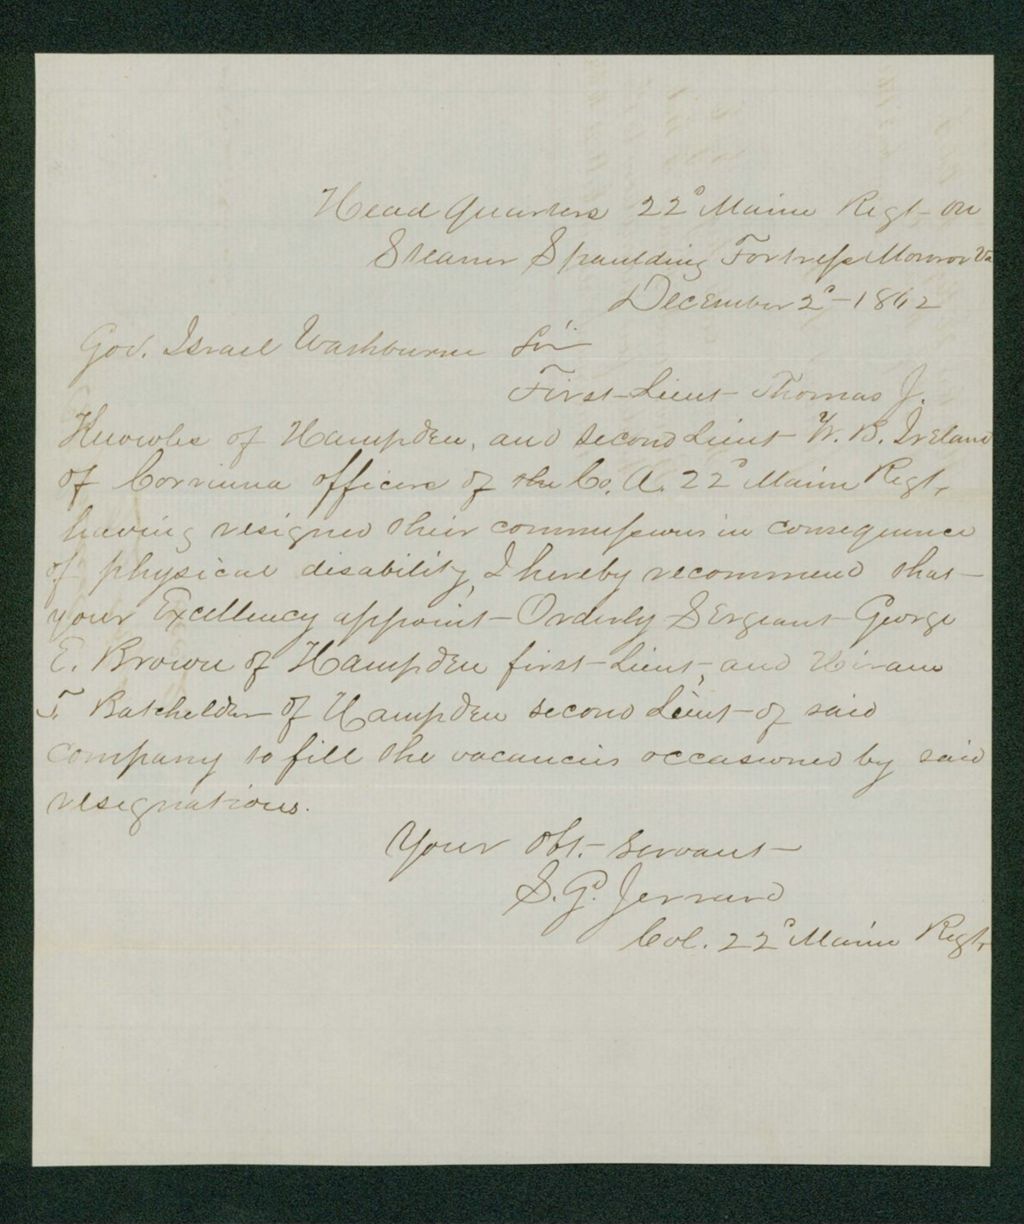 Head Quarters 22d Maine Regt on
Steamer Spaulding Fortress Monroe Va
December 2d 1862
Gov. Israel Washburne Sir
First Lieut Thomas J.
Knowles of Hampden, and second Lieut W. B. Ireland
of Corrinna officers of the Co. A. 22d Maine Regt,
having resigned their commissions in consequence
of physical disability, I hereby recommend that
your Excellency appoint Orderly Sergeant George
E. Brown of Hampden first Lieut, and Hiram
T. Batchelder of Hampden second Lieut of said
company to fill the vacancies occasioned by said
resignations.
Your Obt. servant
S. G. Jerrard
Col. 22d Maine Regt,